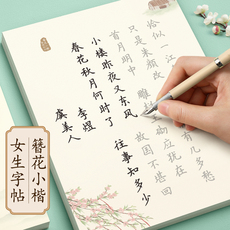 虞美人
李煜
春花秋月何时了
往事知多少
小楼昨夜又东风
故国不堪回
首月明中
只是朱颜改
有几多愁
恰似一江
簪花小楷
女生字帖